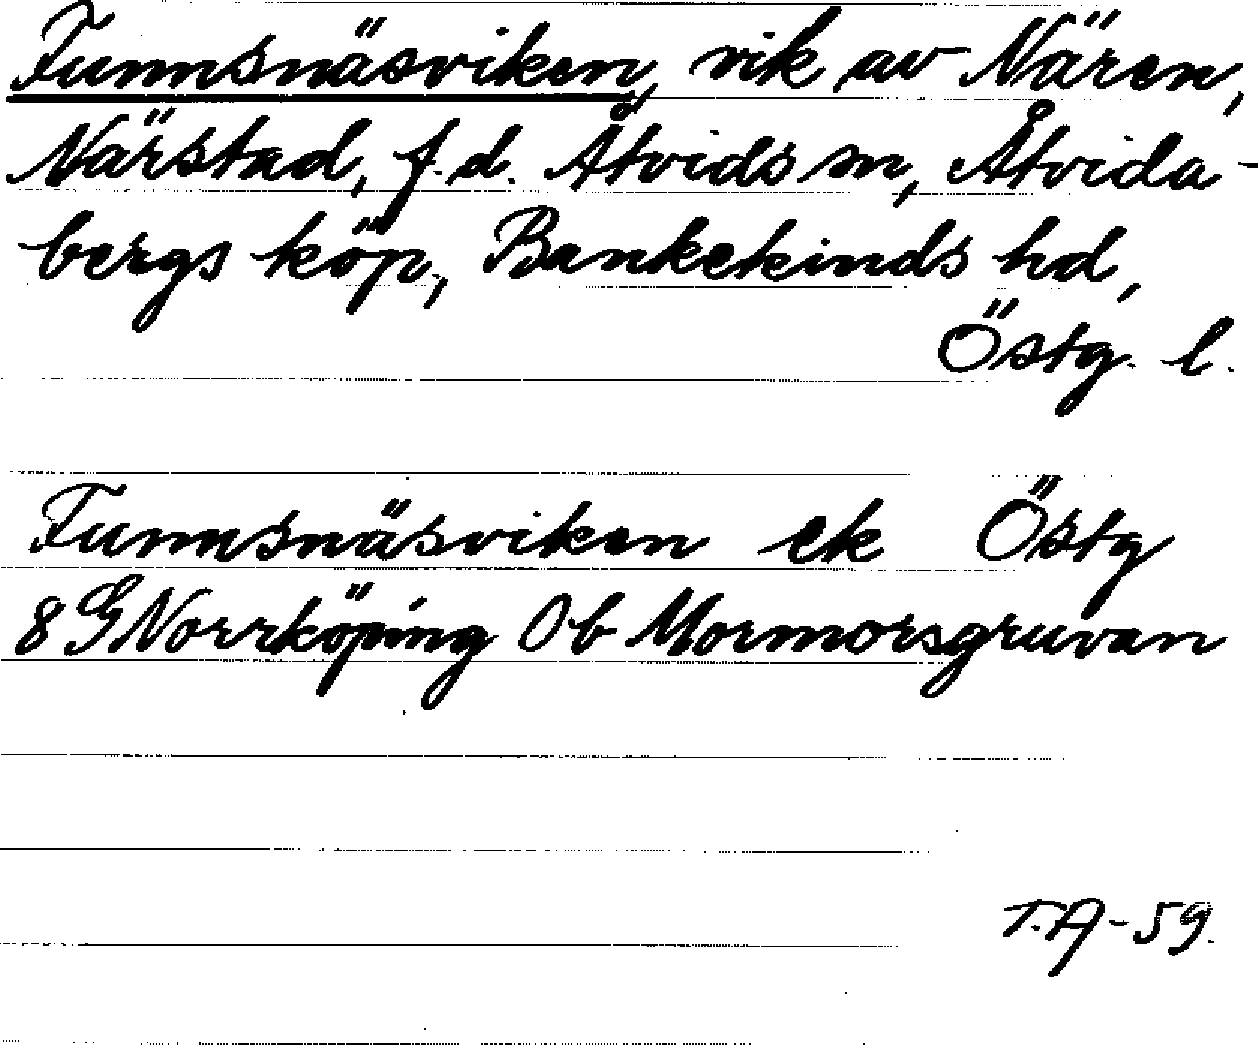 Funnsnäsviken, vik av Nären,
Närstad, f.d. Åtvids sn, Åtvida-
bergs köp, Bankekinds hd,
Östg. l.
Funnsnäsviken ek Östg
8 G Norrköping Ob Mormorsgruvan
T.A-59.